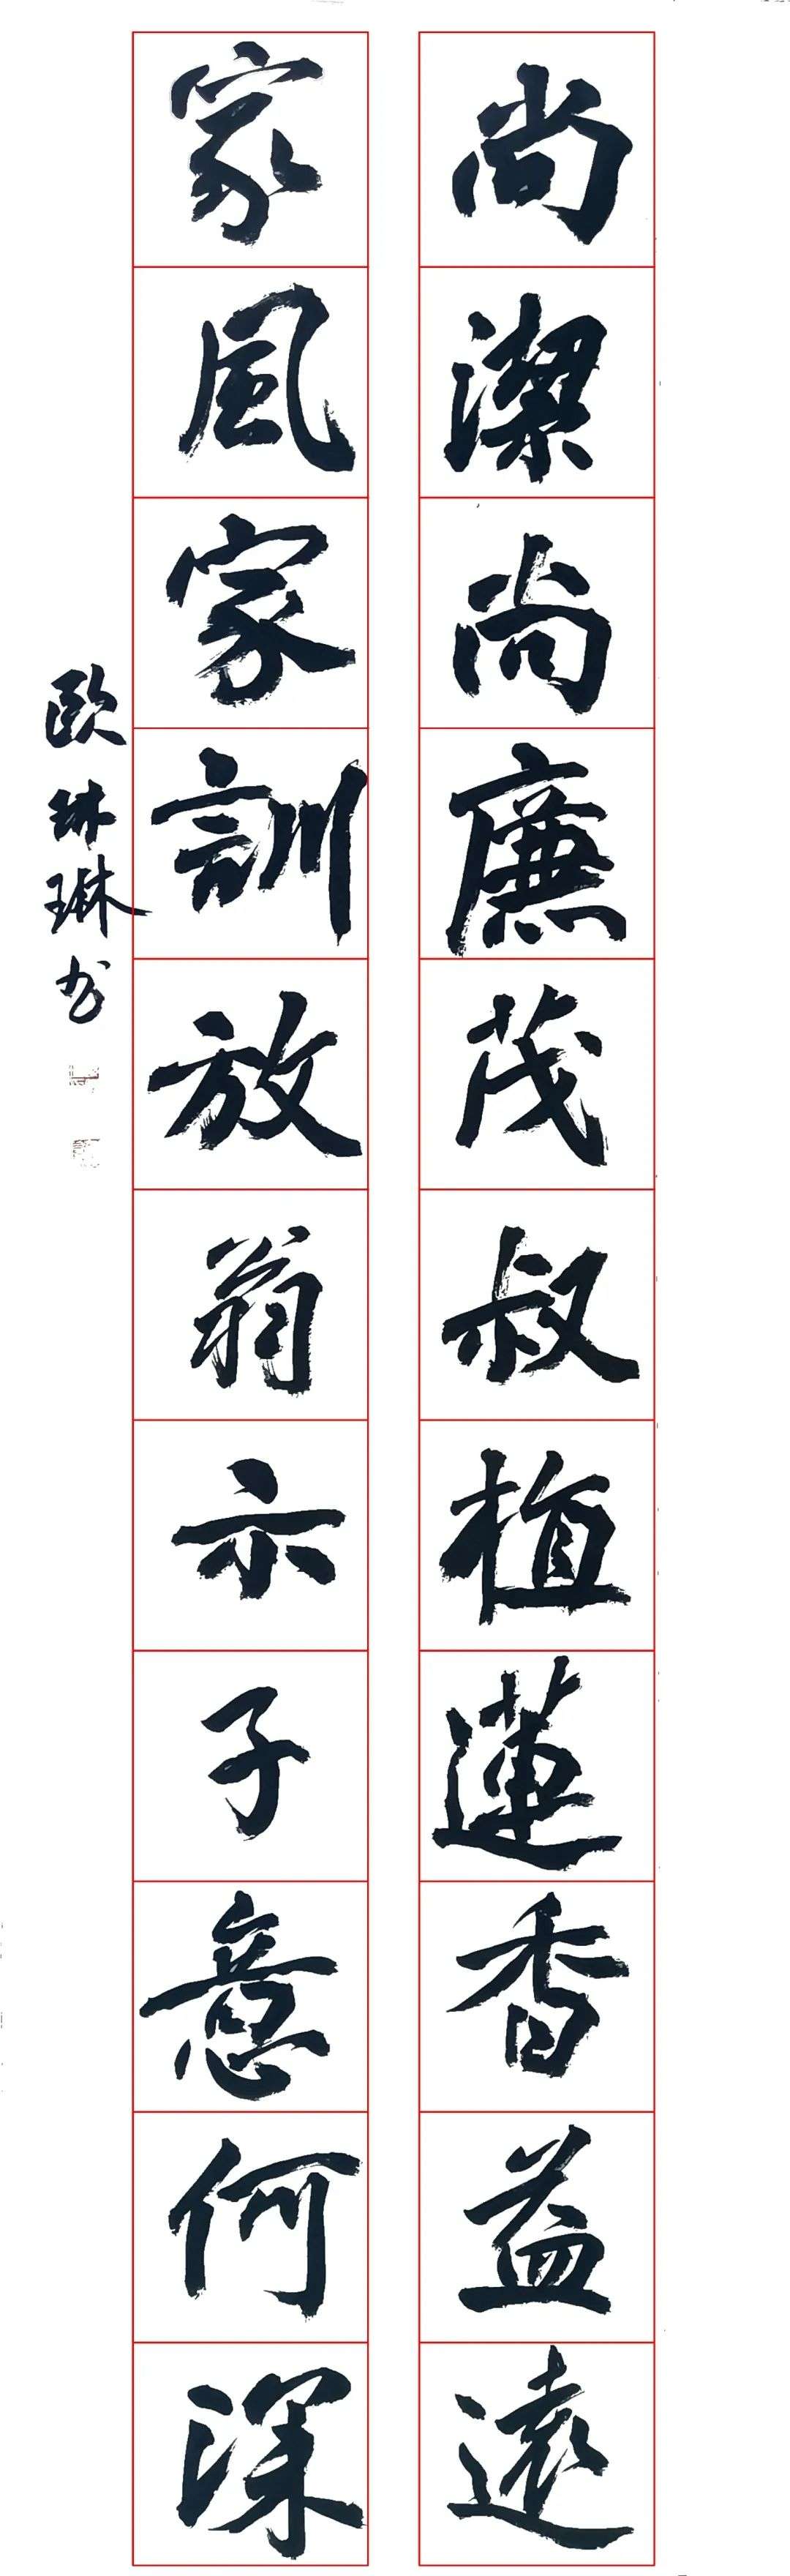 尚潔尚廉茂叔植蓮香益遠
家風家訓放翁示子意何深
歐琳琳书